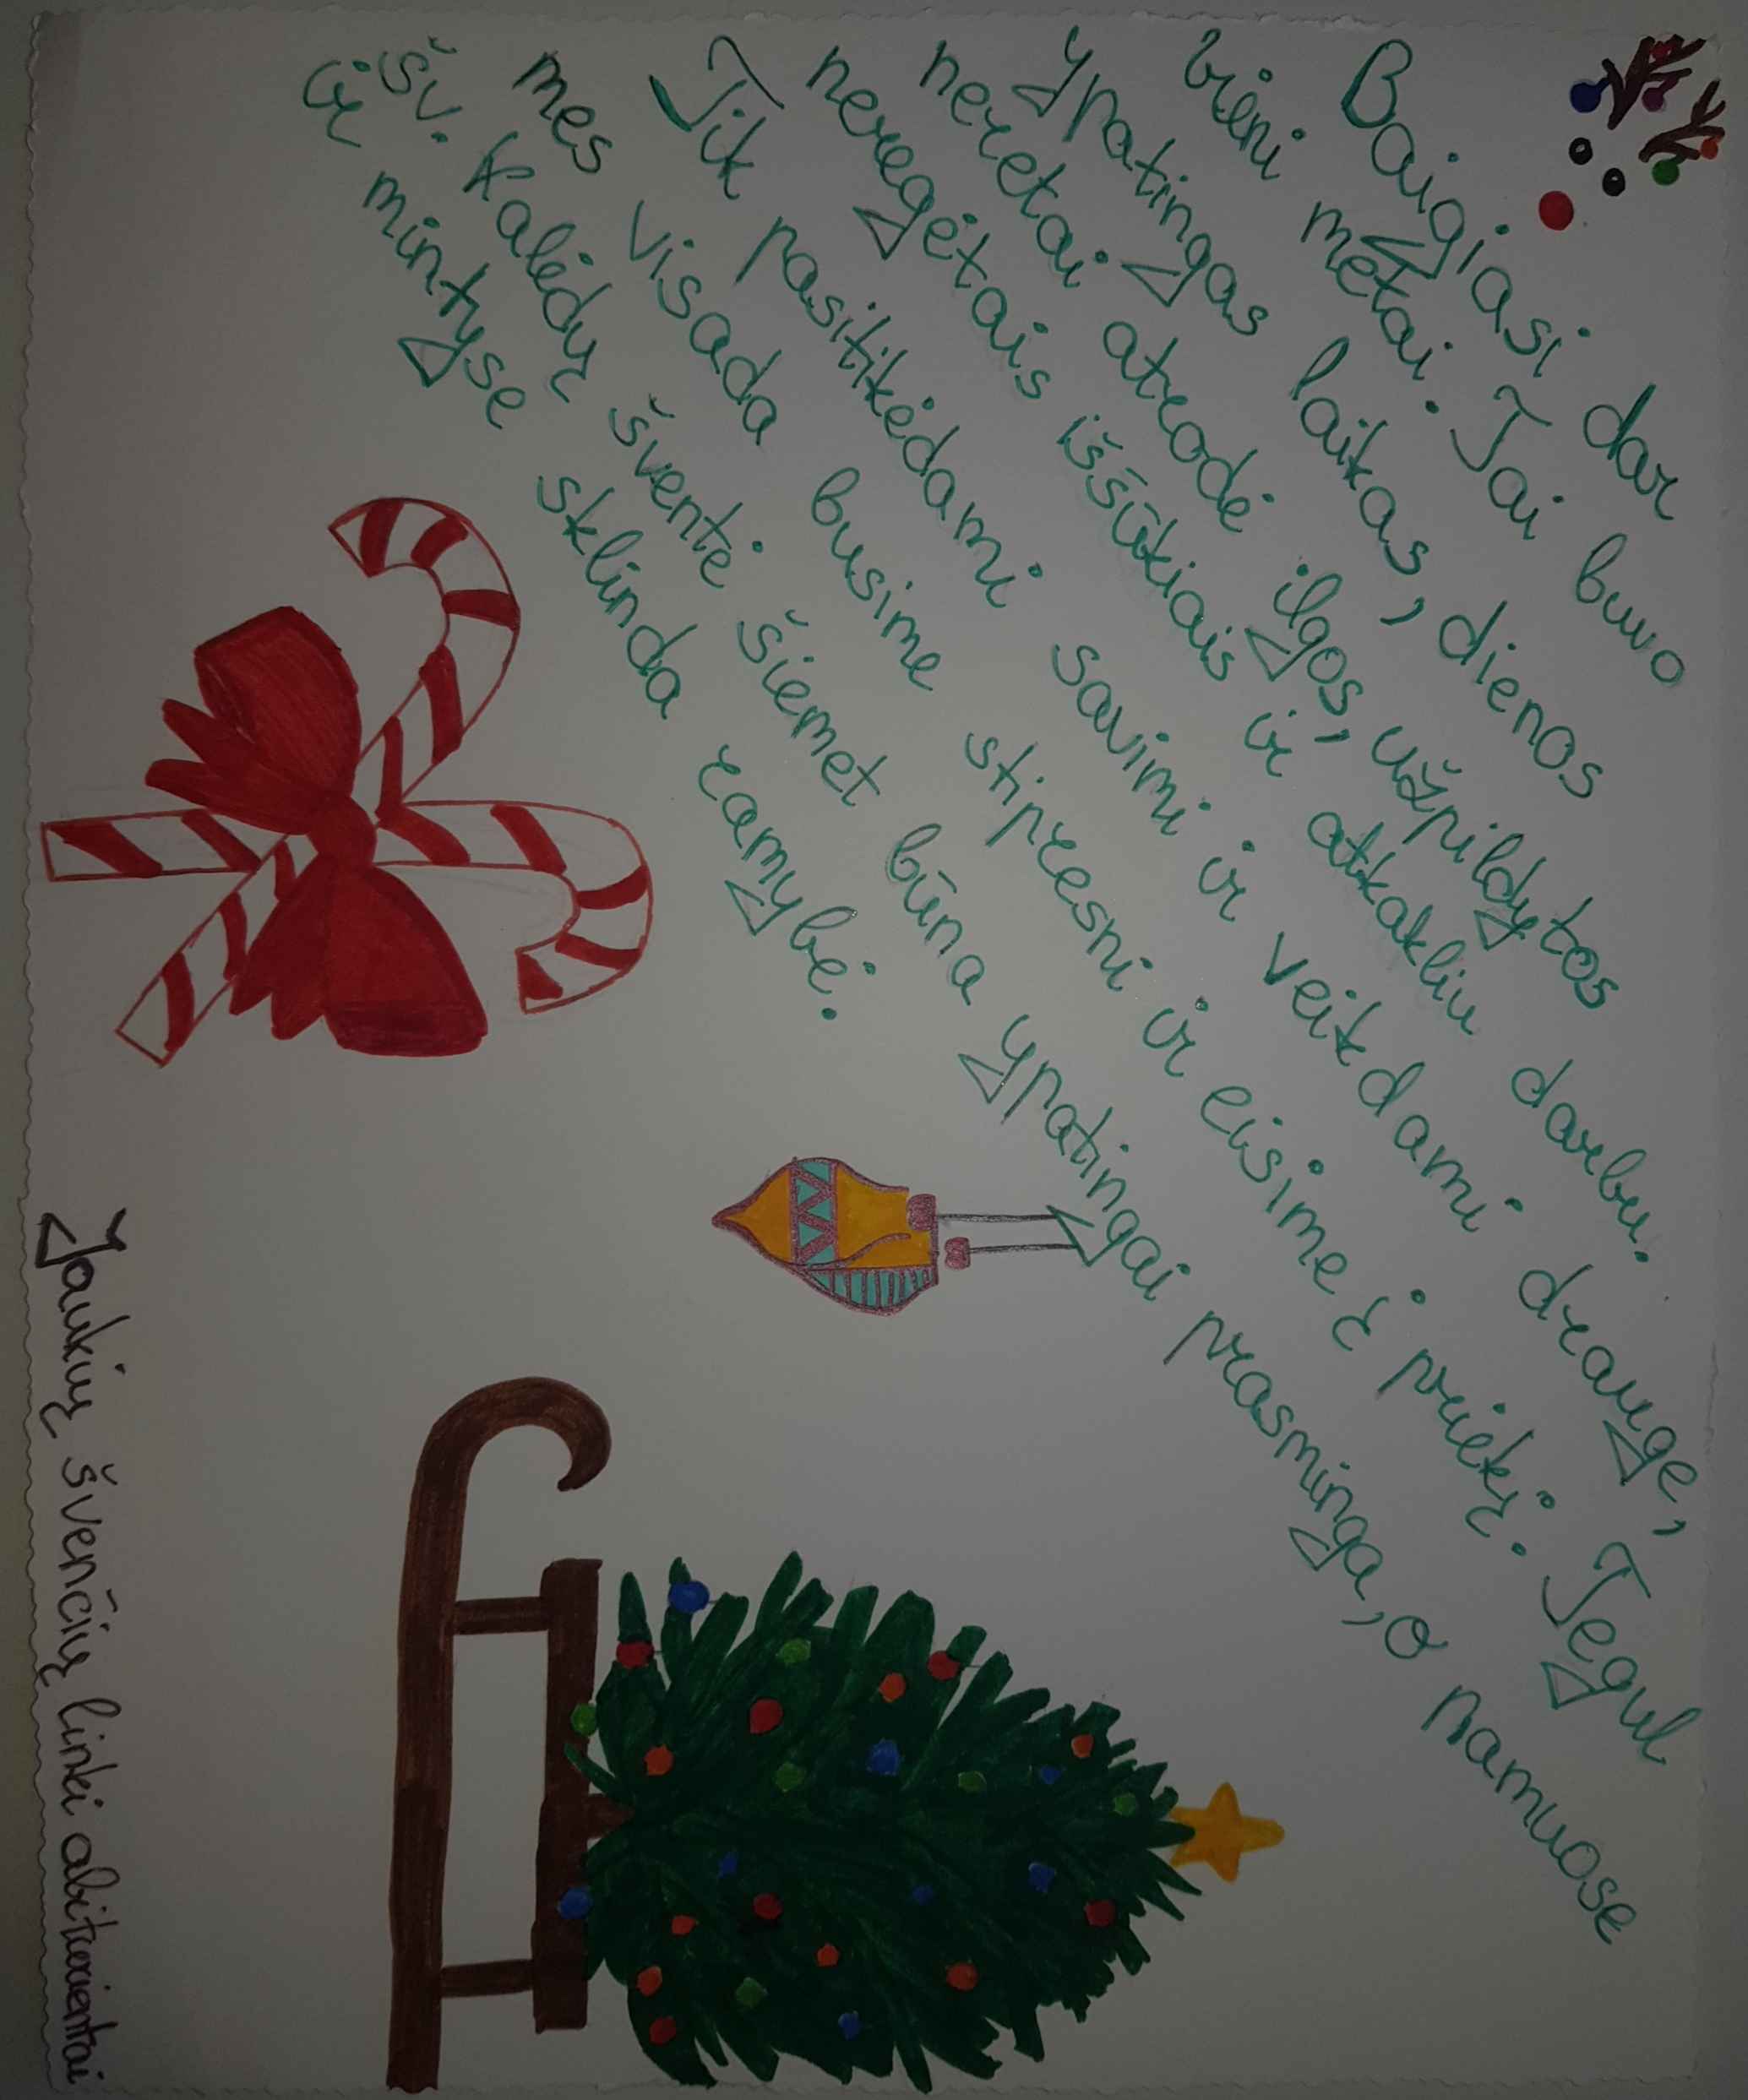 Baigiasi dar
vieni metai. Tai buvo
ypatingas laikas, dienos
neretai atrodė ilgos, užpildytos
neregėtais iššūkiais ir atkakliu darbu.
Tik pasitikėdami savimi ir veikdami drauge,
mes visada busime stipresni ir eisime į priekį. Tegul
šv. Kalėdų šventė šiemet būna ypatingai prasminga, o namuose
ir mintyse sklinda ramybė.
Jaukių švenčių linki abiturientai